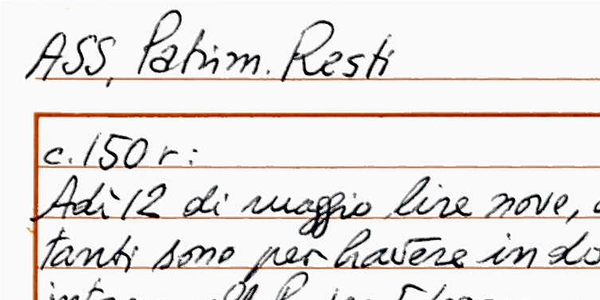 ASS, Patrim. Resti
c. 150 r:
Adì 12 di maggio lire nove,
tanti sono per havere in do